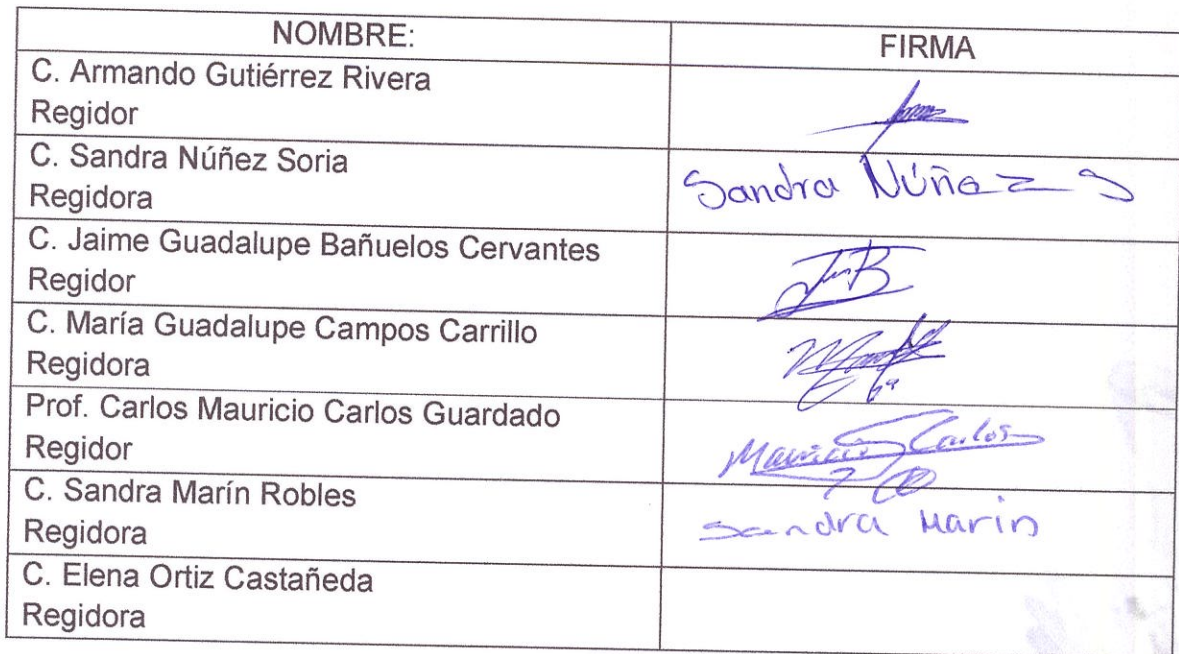 NOMBRE: FIRMA
C. Armando Gutiérrez Rivera
Regidor
C. Sandra Núñez Soria
Regidora
Sandra Núñez S
C. Jaime Guadalupe Bañuelos Cervantes
Regidor
C. María Guadalupe Campos Carrillo
Regidora
Prof. Carlos Mauricio Carlos Guardado
Regidor
Mauricio Carlos
C. Sandra Marín Robles
Regidora
Sandra Marin
C. Elena Ortiz Castañeda
Regidora